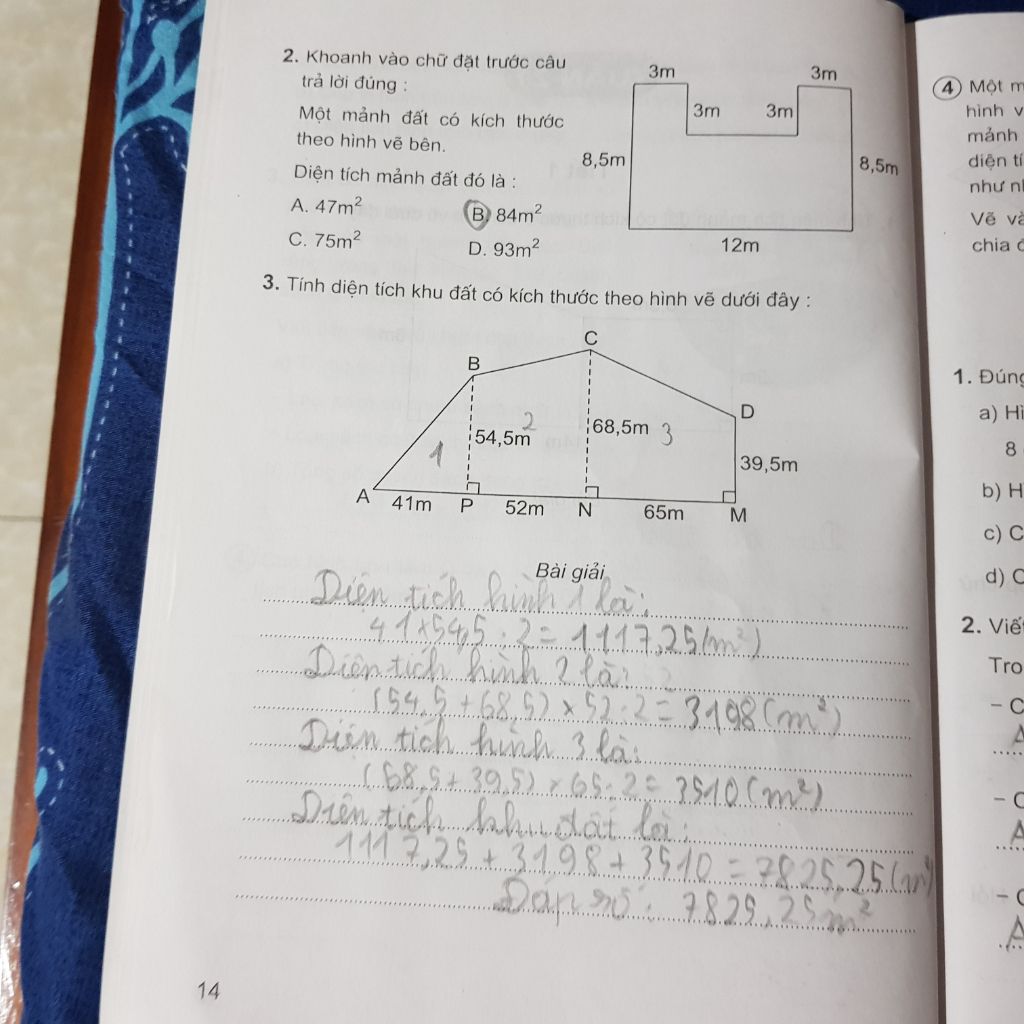 2. Khoanh vào chữ đặt trước câu
trả lời đúng :
Một mảnh đất có kích thước
theo hình vẽ bên.
Diện tích mảnh đất đó là :
A. 47m²
B. 84m²
C. 75m²
D. 93m²
3m
3m
3m
3m
8,5m
8,5m
12m
3. Tính diện tích khu đất có kích thước theo hình vẽ dưới đây :
C
B
D
2
54,5m
68,5m
3
1
39,5m
A
41m
P
52m
N
65m
M
Bài giải
Diện tích hình 1 là:
41 x 54,5 : 2 = 1117,25 (m²)
Diện tích hình 2 là:
(54,5 + 68,5) x 52 : 2 = 3198 (m²)
Diện tích hình 3 là:
(68,5 + 39,5) x 65 : 2 = 3510 (m²)
Diện tích khu đất là:
1117,25 + 3198 + 3510 = 7825,25 (m²)
Đáp số: 7825,25 m²
14
4 Một
hình
mảnh
diện
như
Vẽ
chia
1. Đúng
a)
8
b)
c)
d)
2. Viết